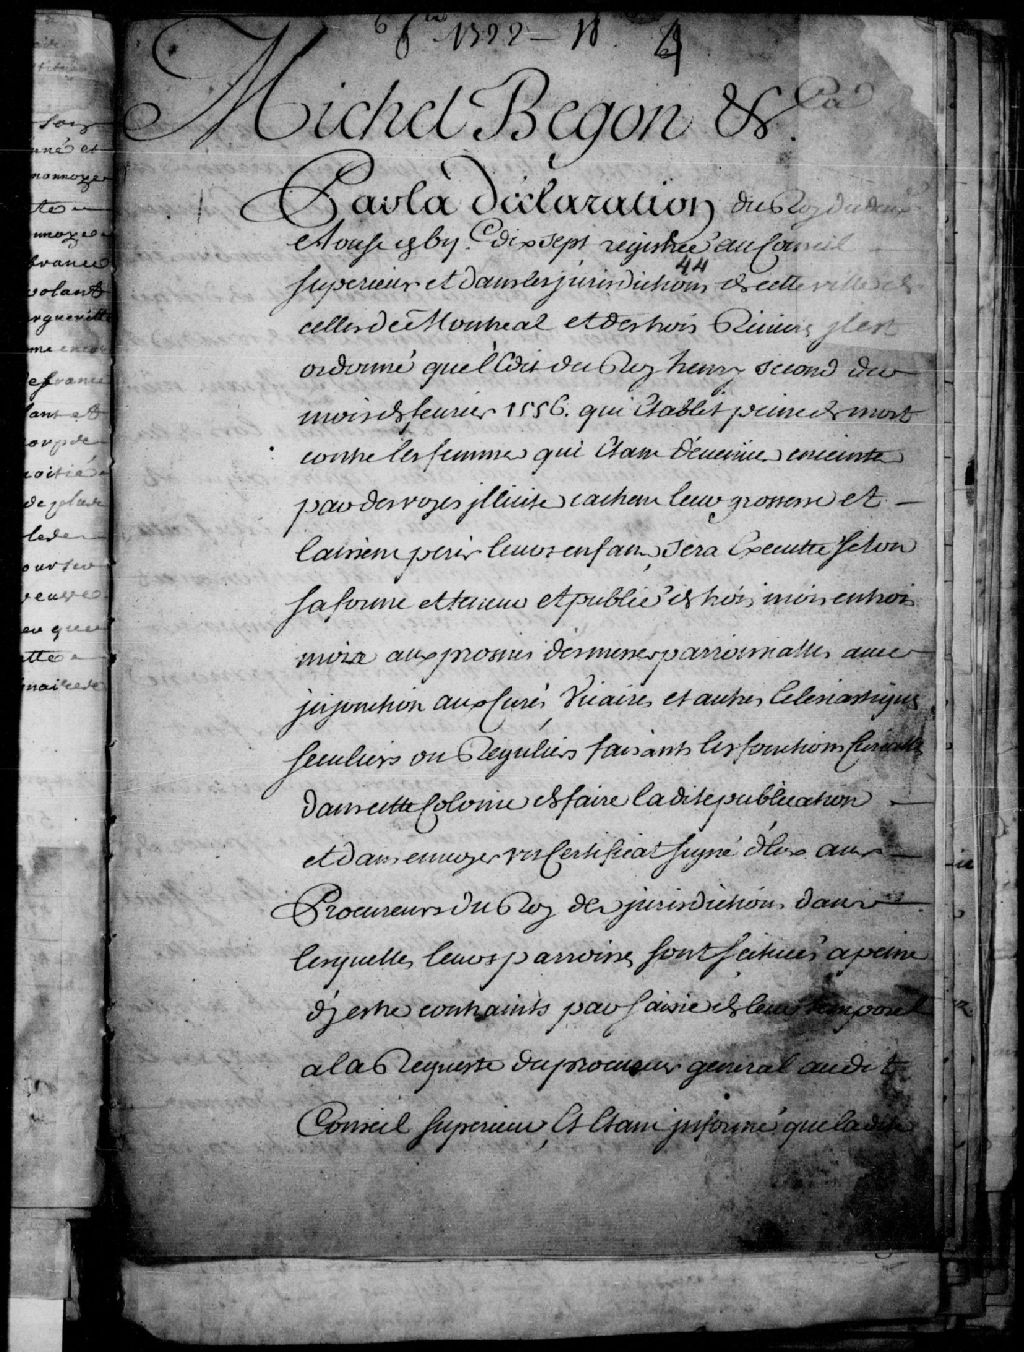 6 fév. 1722 — 18. 4
Michel Begon &. Ca
Par la Déclaration du Roy du deux
Aoust gbij.C dix sept registrée au Conseil
superieur et dans les jurisdictions de cette ville de
44
celles de Montreal et des trois Rivieres jl est
ordonné que l'Edit du Roy henry second du
mois de feurier 1556. qui Etablit peine de mort
contre les femmes qui Etant déuenues enceinte
par des voyes jllicite cachent leur grossesse et —
laissent perir leurs enfans, sera Executté selon
sa forme et teneur et publié de trois mois en trois
mois aux prosnes des messes parroissialles auec
jnjonction aux Curés, Vicaires, et autres Eclesiastiques
seculiers ou Reguliers faisants les fonctions Curialles
dans cette Colonie de faire la dite publication —
et d'en enuoyer vn Certificat signé d'Eux aux —
Procureurs du Roy des jurisdictions dans
lesquelles leurs parroisses sont scituées a peine
d'y estre contraints par saisie de leur temporel
a la Requeste du procureur general au dit
Conseil superieur, Et Etant jnformé que la dite